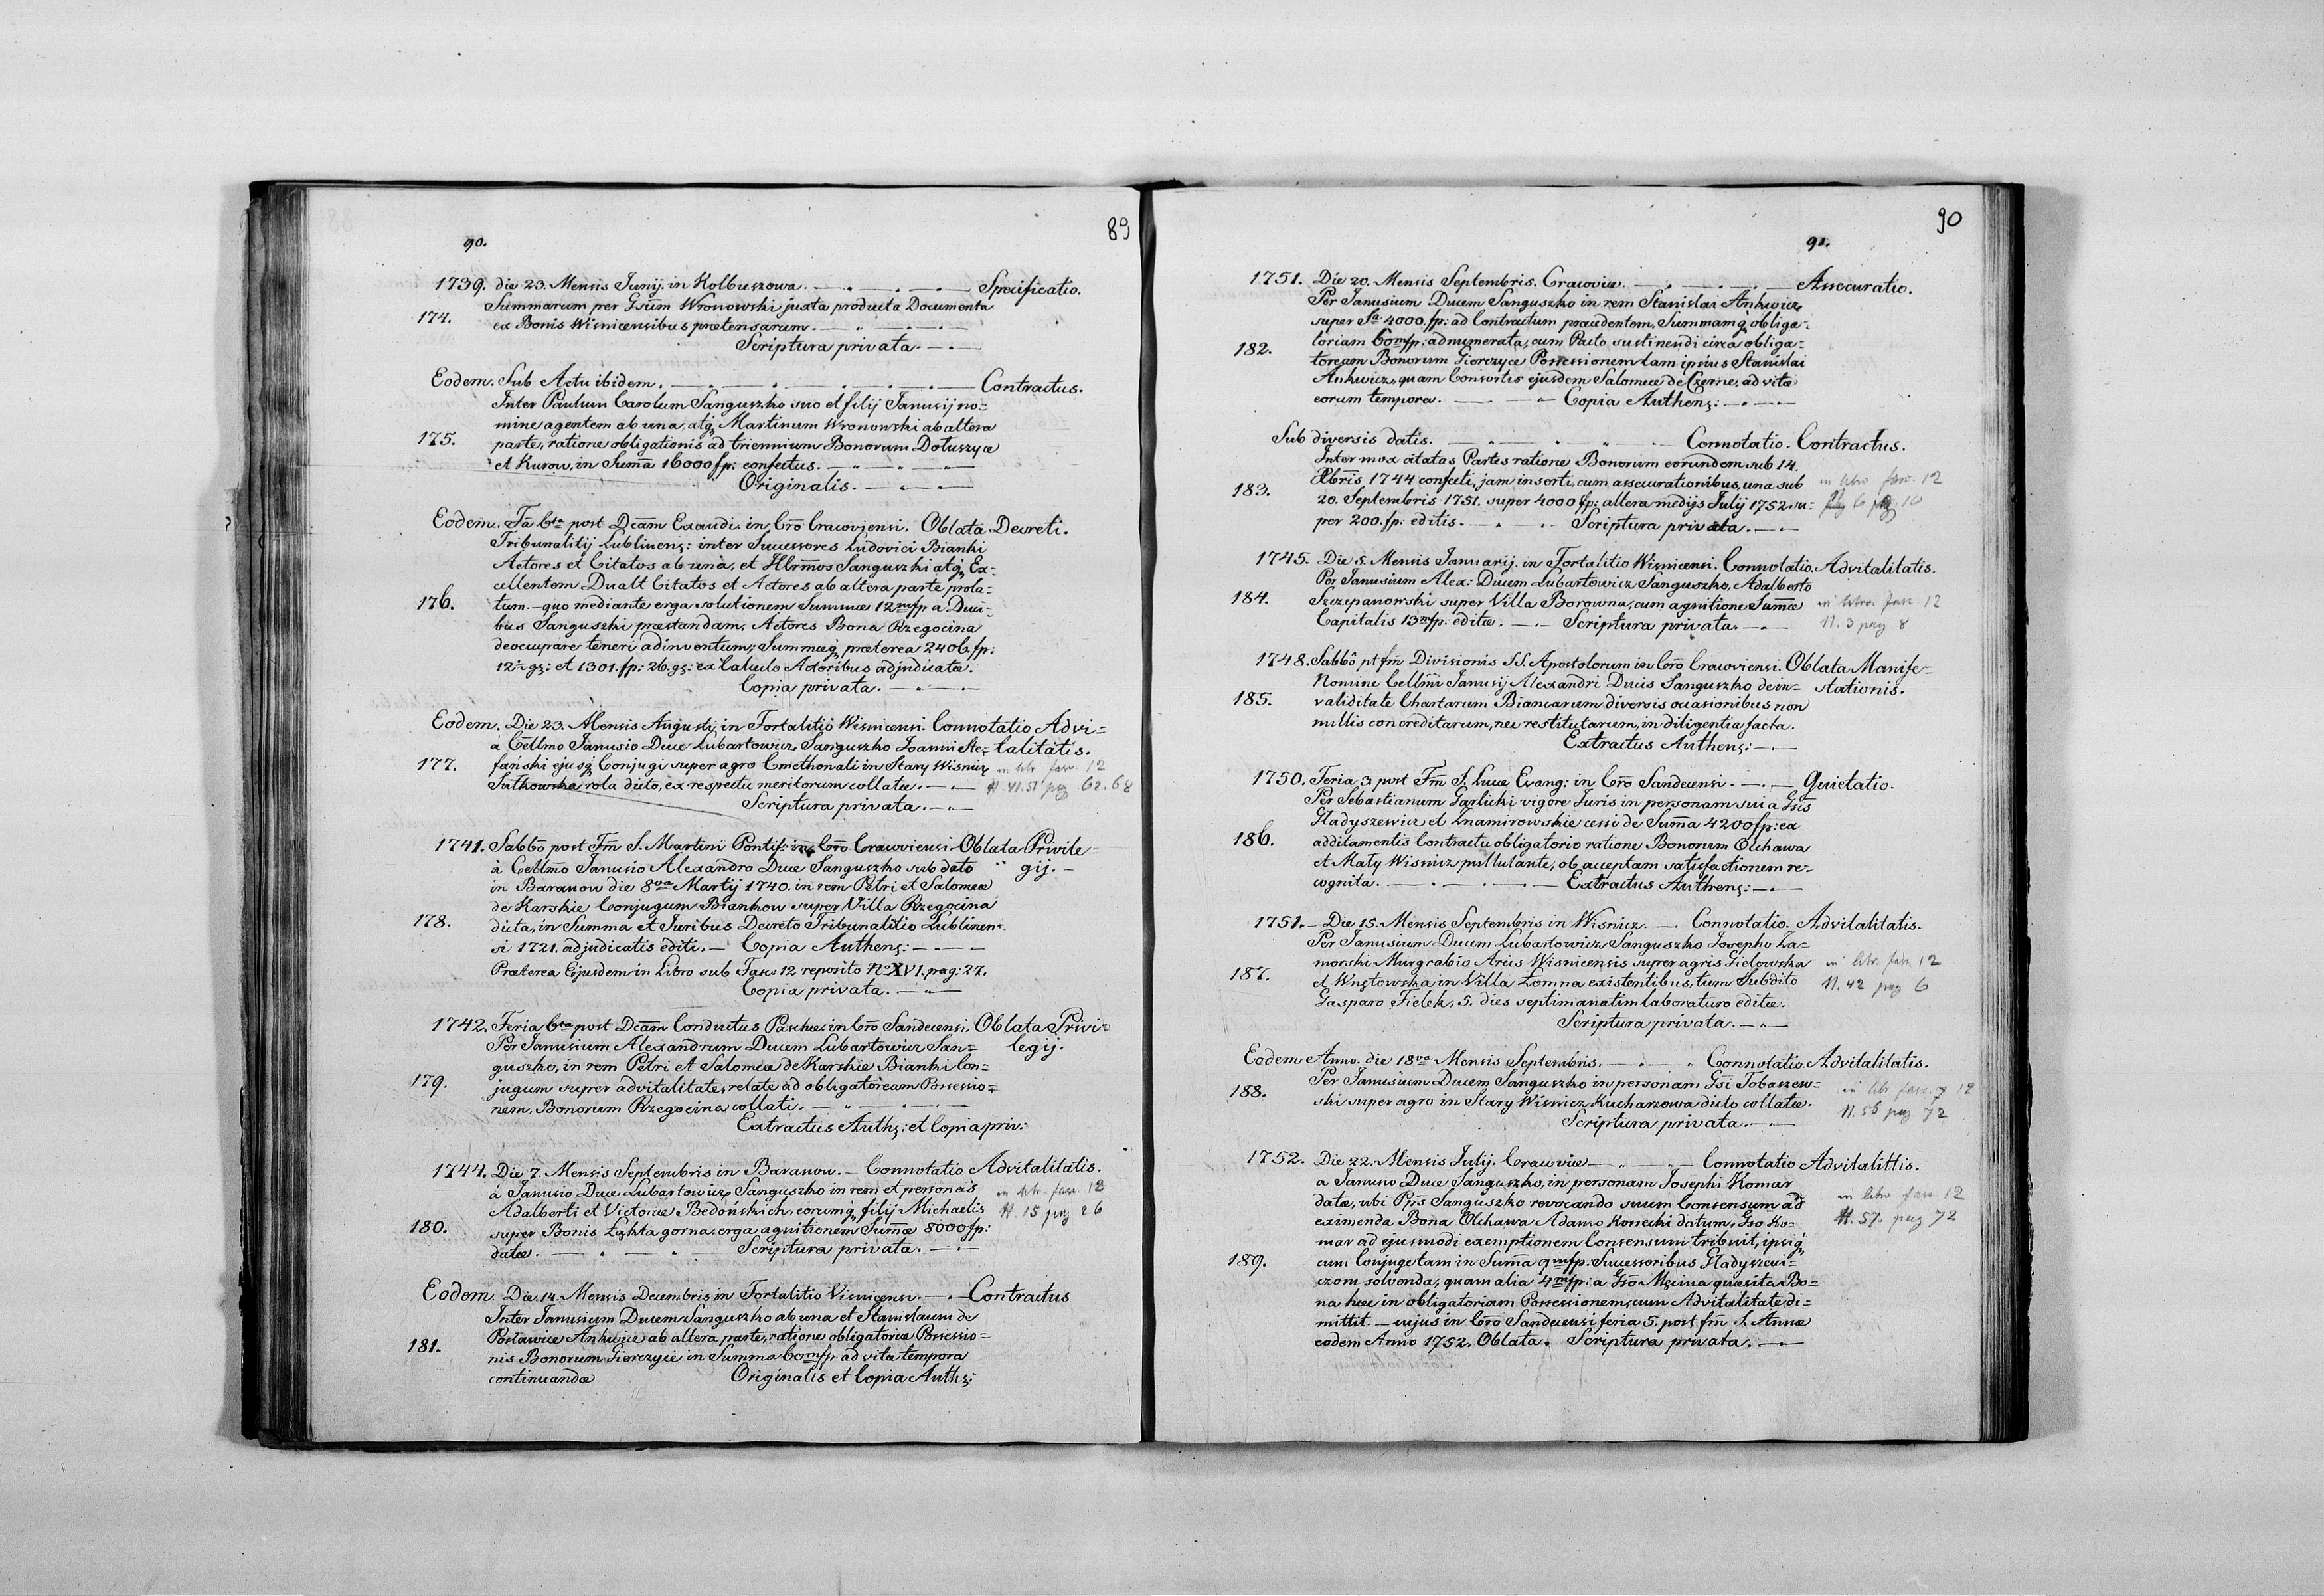 89
90.
1739. die 23. Mensis Junij. in Kolbuszowa. Specificatio.
Summarum per Gsūm Wronowski juxta producta Documenta
174. ex Bonis Wisnicensibus prætensarum.
Scriptura privata.
Eodem. Sub Actu ibidem. Contractus.
Inter Paulum Carolum Sanguszko suo et filij Janusij no=
mine agentem ab una, atq̨ Martinum Wronowski ab altera
175. parte, ratione obligationis ad triennium Bonorum Dołuszyce
et Kurow, in Sum̄a 16000 fp: confectus.
Originalis.
Eodem. Fa 6ta post Dcām Exaudi. in Crō Cracoviensi. Oblata Decreti.
Tribunalitij Lublinenş: inter Successores Ludovici Bianki
Actores et Citatos ab una, et Illrm̄os Sanguszki atq̨ Ex=
cellentem Dualt Citatos et Actores ab altera parte prola=
176. tum. – quo mediante erga solutionem Summæ 12 m/fp a Duci=
bus Sanguszki præstandam, Actores Bona Rzegocina
deoccupare teneri adinventum; Summæq̨ præterea 2406. fp:
12½ gş: et 1301. fp: 26. gş: ex Calculo Actoribus adjudicatæ.
Copia privata.
Eodem. Die 23. Mensis Augusti, in Fortalitio Wisnicensi. Connotatio Advi=
à Cellm̄o Janusio Duce Lubartowicz Sanguszko Joanni Ste= talitatis.
177. fański ejusq̨ Conjugi super agro Cmethonali in Stary Wisnicz in libr. fasc. 12
Sutkowska rola dicto, ex respectu meritorum collatæ. N. 41. 51 pag 62. 68
Scriptura privata.
1741. Sabbō post Fm̄ S. Martini Pontif: in Crō Cracoviensi Oblata Privile=
à Cellm̄o Janusio Alexandro Duce Sanguszko sub dato gij.
in Baranow die 8va Martij 1740. in rem Petri et Salomeæ
de Karskie Conjugum Biankow super Villa Rzegocina
178. dicta, in Summa et Juribus Decreto Tribunalitio Lublinen=
si 1721. adjudicatis editi. – Copia Authenş:
Præterea Ejusdem in Libro sub Fasc: 12 reposito No XVI. pag: 27.
Copia privata.
1742. Feria 6ta post Dcām Conductus Paschæ. in Crō Sandecensi. Oblata Privi=
Per Janusium Alexandrum Ducem Lubartowicz San= legij.
guszko, in rem Petri et Salomeæ de Karskie Bianki Con=
179. jugum super advitalitate, relate ad obligatoream Possessio=
nem, Bonorum Rzegocina collati.
Extractus Authş: et Copia priv:
1744. Die 7. Mensis Septembris in Baranow. – Connotatio Advitalitatis.
à Janusio Duce Lubartowicz Sanguszko in rem et personas in libr. fasc. 12
Adalberti et Victoriæ Bedońskich, eorumq̨ filij Michaelis N. 15 pag 26
180. super Bonis Łąkta gorna, erga agnitionem Sum̄æ 8000 fp:
datæ. Scriptura privata.
Eodem. Die 14. Mensis Decembris in Fortalitio Visnicensi. Contractus
Inter Janusium Ducem Sanguszko ab una et Stanislaum de
Posławice Ankwicz ab altera parte, ratione obligatoriæ Possessio=
181. nis Bonorum Gierczyce in Summa 60 m/fp. ad vitæ tempora
continuandæ Originalis et Copia Authş:
90
91.
1751. Die 20. Mensis Septembris. Cracoviæ. Assecuratio.
Per Janusium Ducem Sanguszko in rem Stanislai Ankwicz
super Sa 4000. fp: ad Contractum præcedentem, Summamq̨ obliga=
toriam 60 m/fp: adnumerata, cum Pacto sustinendi circa obliga=
182. toream Bonorum Gierczyce Possessionem tam ipsius Stanislai
Ankwicz, quam Consortis ejusdem Salomeæ de Czerne, ad vitæ
eorum tempora. Copia Authenş:
Sub diversis datis. Connotatio. Contractus.
Inter mox citatas Partes ratione Bonorum eorundem sub 14.
Xbris 1744 confecti, jam inserti, cum assecurationibus, una sub in libr. fasc. 12
183. 20. Septembris 1751. super 4000 fp: altera medijs Julij 1752. su= 6 pag. 10
per 200. fp: editis. Scriptura privata.
1745. Die 5. Mensis Januarij. in Fortalitio Wisnicensi. Connotatio. Advitalitatis.
Per Janusium Alex: Ducem Lubartowicz Sanguszko, Adalberto
184. Szczepanowski super Villa Borowna, cum agnitione Sum̄æ in libro. fasc. 12
Capitalis 13 m/fp: editæ. Scriptura privata. N. 3 pag 8
1748. Sabbō pt fm̄ Divisionis S.S. Apostolorum in Crō Cracoviensi. Oblata Manife=
Nomine Cellm̄i Janusij Alexandri Ducis Sanguszko de in= stationis.
185. validitate Chartarum Biancarum diversis occasionibus non
nullis concreditarum, nec restitutarum, in diligentia facta.
Extractus Authenş:
1750. Feria 3. post Fm̄ S. Lucæ Evang: in Crō Sandecensi. Quietatio.
Per Sebastianum Garlicki vigore Juris in personam sui a Gsis
Gładyszewicz et Znamirowskie cessi de Sum̄a 4200 fp: ex
186. additamentis Contractu obligatorio ratione Bonorum Olchawa
et Mały Wisnicz pullulante, ob acceptam satisfactionem re=
cognita. Extractus Authenş:
1751. – Die 15. Mensis Septembris in Wisnicz. Connotatio. Advitalitatis.
Per Janusium Ducem Lubartowicz Sanguszko Josepho Za=
morski Murgrabio Arcis Wisnicensis super agris Gielowska in libr. fasc. 12
187. et Wnętowska in Villa Łomna existentibus, tum Subdito N. 42 pag 6
Gasparo Fielek, 5. dies septimanatim laboraturo editæ.
Scriptura privata.
Eodem Anno. die 18va Mensis Septembris. Connotatio. Advitalitatis.
Per Janusium Ducem Sanguszko in personam Gsi Tobaszew= in libr fasc. 12
188. ski super agro in Stary Wisnicz Kucharzowa dicto collatæ. N. 56 pag 72
Scriptura privata.
1752. Die 22. Mensis Julij. Cracoviæ Connotatio Advitalittis.
a Janusio Duce Sanguszko, in personam Josephi Komar
datæ, ubi Pn̄s Sanguszko revocando suum Consensum ad in libr fasc. 12
eximenda Bona Olchawa Adamo Kosecki datum, Gso Ko= N. 57. pag 72
mar ad ejusmodi exemptionem Consensum tribuit, ipsiq̨
189. cum Conjuge tam in Sum̄a 9 m/fp. Successoribus Gładyszewi=
czom solvenda, quam alia 4 m/fp: a Gso Męcina quæsita Bo=
na hæc in obligatoriam Possessionem, cum Advitalitate di=
mittit. – cujus in Crō Sandecensi feria 5. post fm̄ S. Annæ
eodem Anno 1752. Oblata. Scriptura privata.